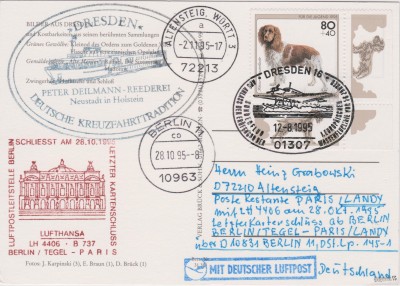 BILDER AUS DRESDEN
und Kostbarkeiten aus seinen berühmten Sammlungen
Grünes Gewölbe:
DRESDEN
PETER DEILMANN - REEDEREI
Neustadt in Holstein
DEUTSCHE KREUZFAHRTTRADITION
ALTENSTEIG, WÜRTT 3
a
-2.11.95-17
72213
BERLIN 11
co
28.10.95--8
10963
80
+40
DRESDEN 16
12-8.1995
01307
SCHLIESST AM 28.10.1995
LUFTPOSTLEITSTELLE BERLIN
LETZTER KARTENSCHLUSS
LUFTHANSA
LH 4406 - B 737
BERLIN / TEGEL - PARIS
Fotos: J. Karpinski (3), E. Braun (1), D. Brück (1)
VERLAG BRÜCK
Herrn Heinz Grabowski
D72210 Altensteig
Poste Restante PARIS/LANDY
mit LH 4406 am 28. OKT. 1995
Letzter Kartenschluss ab BERLIN
BERLIN/TEGEL - PARIS/LANDY
übn D 10831 BERLIN 11, DSt. Lp. 145-1
MIT DEUTSCHER LUFTPOST
Deutschland